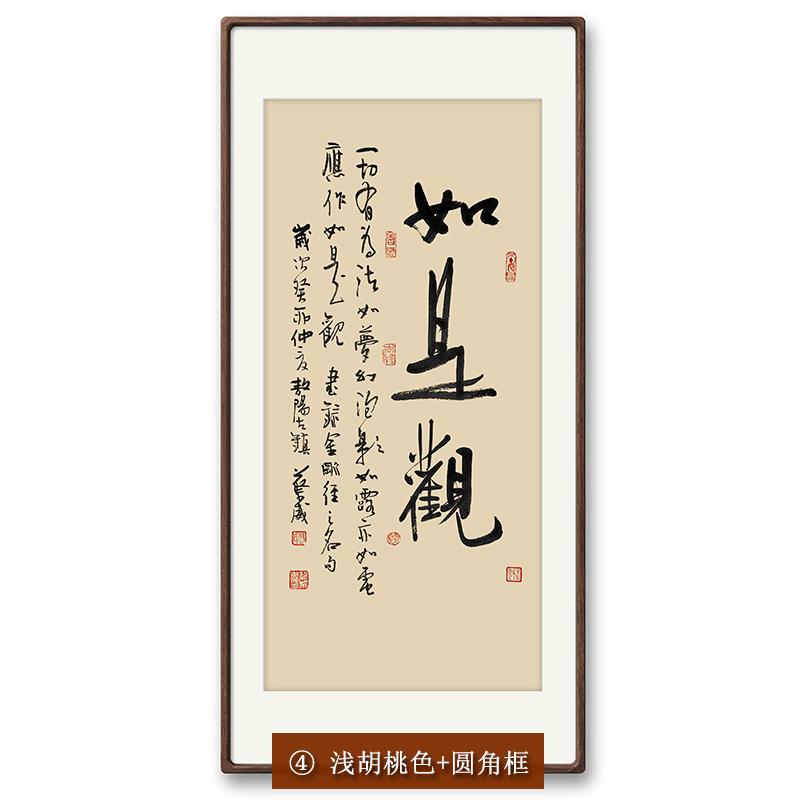 如是觀
一切有為法如夢幻泡影如露亦如電
應作如是觀 書錄金剛經之名句
歲次癸卯仲夏 鼓陽古鎮 蔡威
④ 浅胡桃色+圆角框